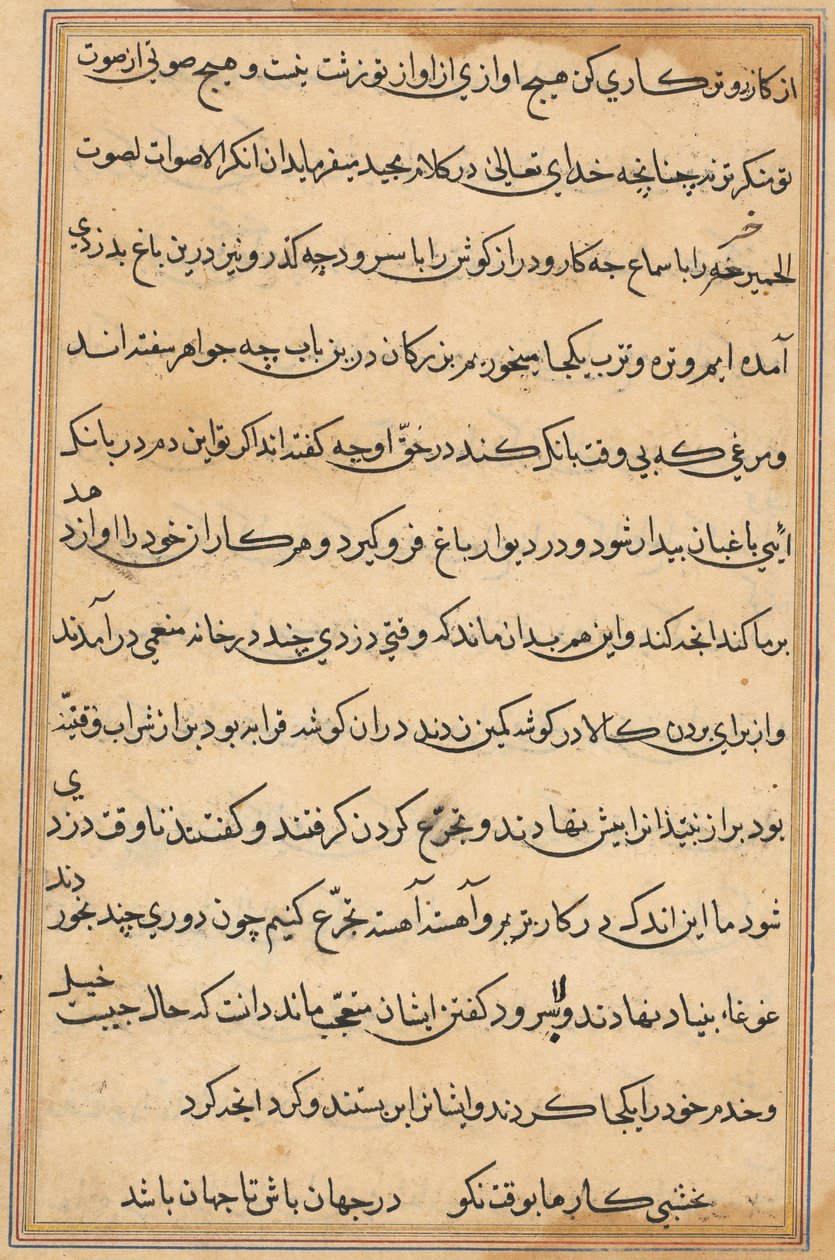 از کازرو تن کاری کن هیچ اوازی از اواز تو زشت نیست و هیچ صوتی از صوت
تو منکر تر نه چنانچه خدای تعالی در کلام مجید میفرماید ان انکر الاصوات لصوت
الحمیر خر خره را با سماع چه کار و دراز کوش را با سرود چه کذر و نیز درین باغ بدزدی
آمده ایم و تره و ترب یکجا میخوریم بزرکان درین باب چه جواهر سفته اند
و مرغی که بی وقت بانک کند در حقّ او چه کفته اند اکر تو این دم در بانک
ائی باغبان بیدار شود و در دیوار باغ فرو کیرد و همکاران خود را اواز دهد
بر ما کند انچه کند و این هم بدان ماند که وقتی دزدی چند در خانه منعمی در آمدند
و از برای بردن کالا در کوشه کمین زدند دران کوشه قرابه بود بر از شراب و قنینه
بود بر از نبیذ انرا بیش نهادند و تجرّع کردن کرفتند و کفتند تا وقت دزدی
شود ما این اندک در کار بریم و آهسته آهسته تجرّع کنیم چون دوری چند بخوردند
غوغاء بنیاد نهادند و سرود کفتن ایشان متعجّب ماند دانست که حال چیست خیل
و خدم خود را یکجا کردند و ایشانرا بر بستند و کرد انچه کرد
نخشبی کارها بوقت نکو در جهان باش تا جهان باشد